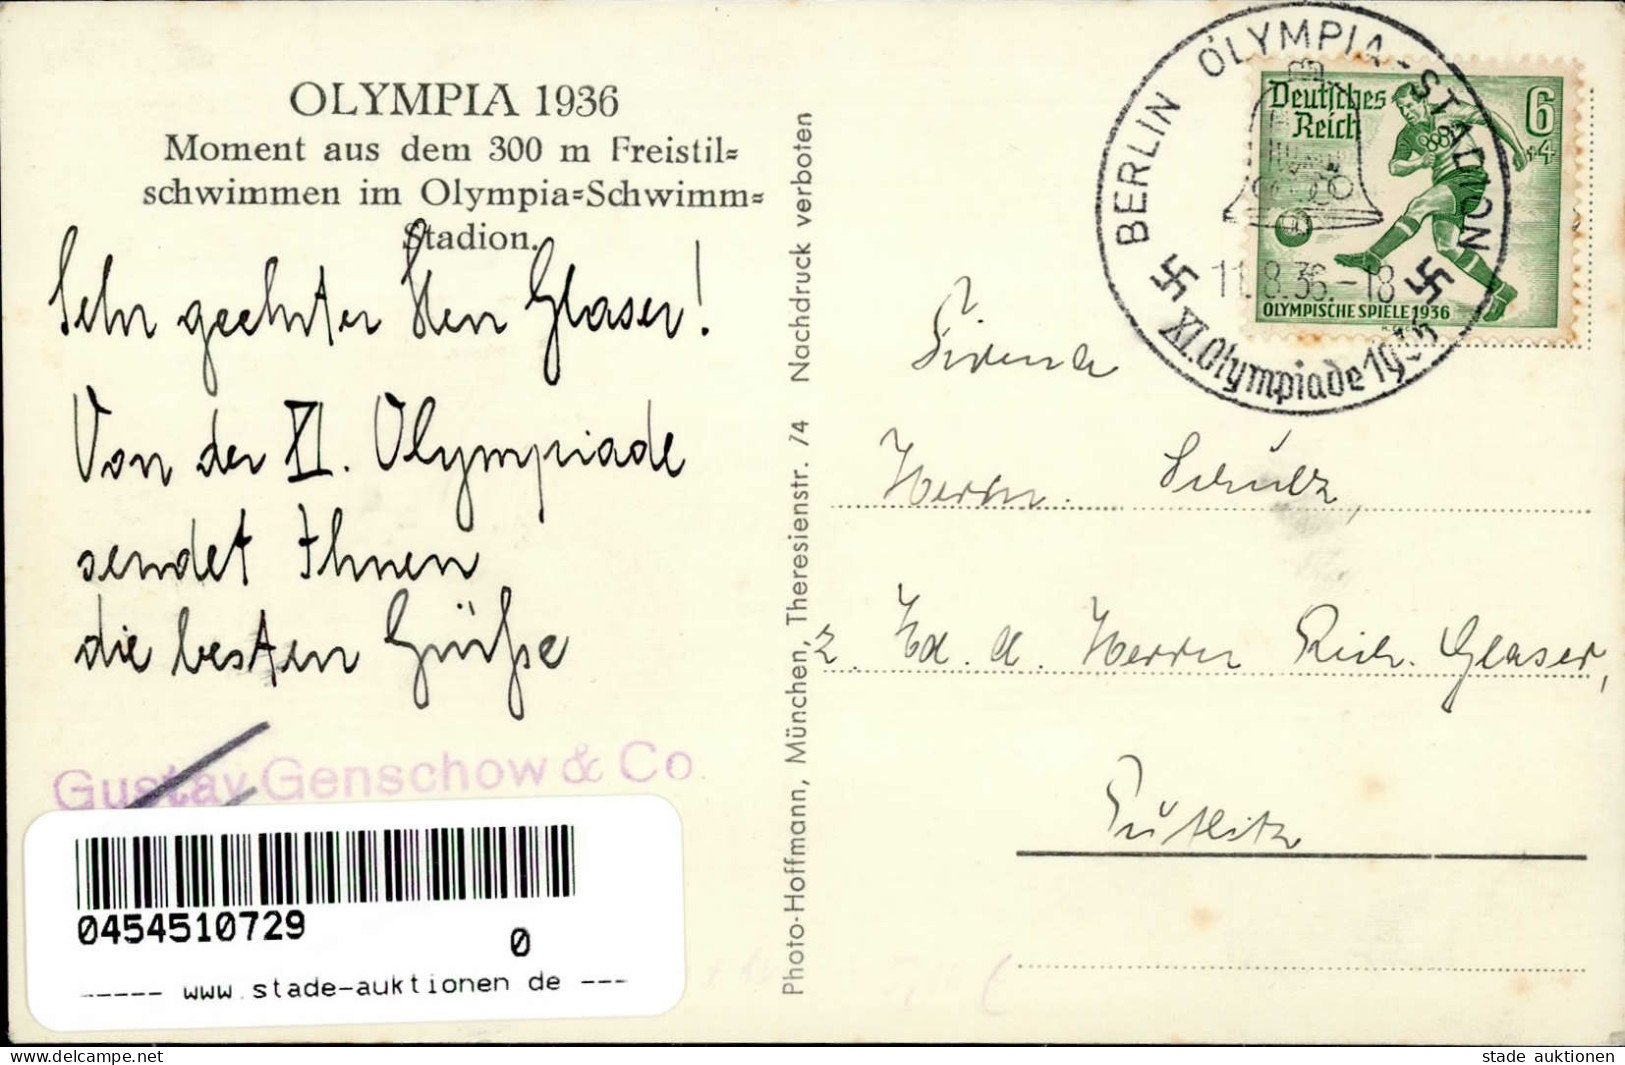 OLYMPIA 1936
Moment aus dem 300 m Freistil=
schwimmen im Olympia=Schwimm=
Stadion.
Sehr geehrter Herr Glaser!
Von der XI. Olympiade
sendet Ihnen
die besten Grüße
Gustav Genschow & Co
0454510729
0
----- www.stade-auktionen de ---
Photo-Hoffmann, München, Theresienstr. 74 Nachdruck verboten
BERLIN OLYMPIA-STADION
11.8.36.-18
XI. Olympiade 1936
Deutsches
Reich
6
+4
OLYMPISCHE SPIELE 1936
Firma
Herrn Schulz,
z. Hd. d. Herrn Rich. Glaser,
Putlitz
www.ansichtskartenversand.com
stade auktionen